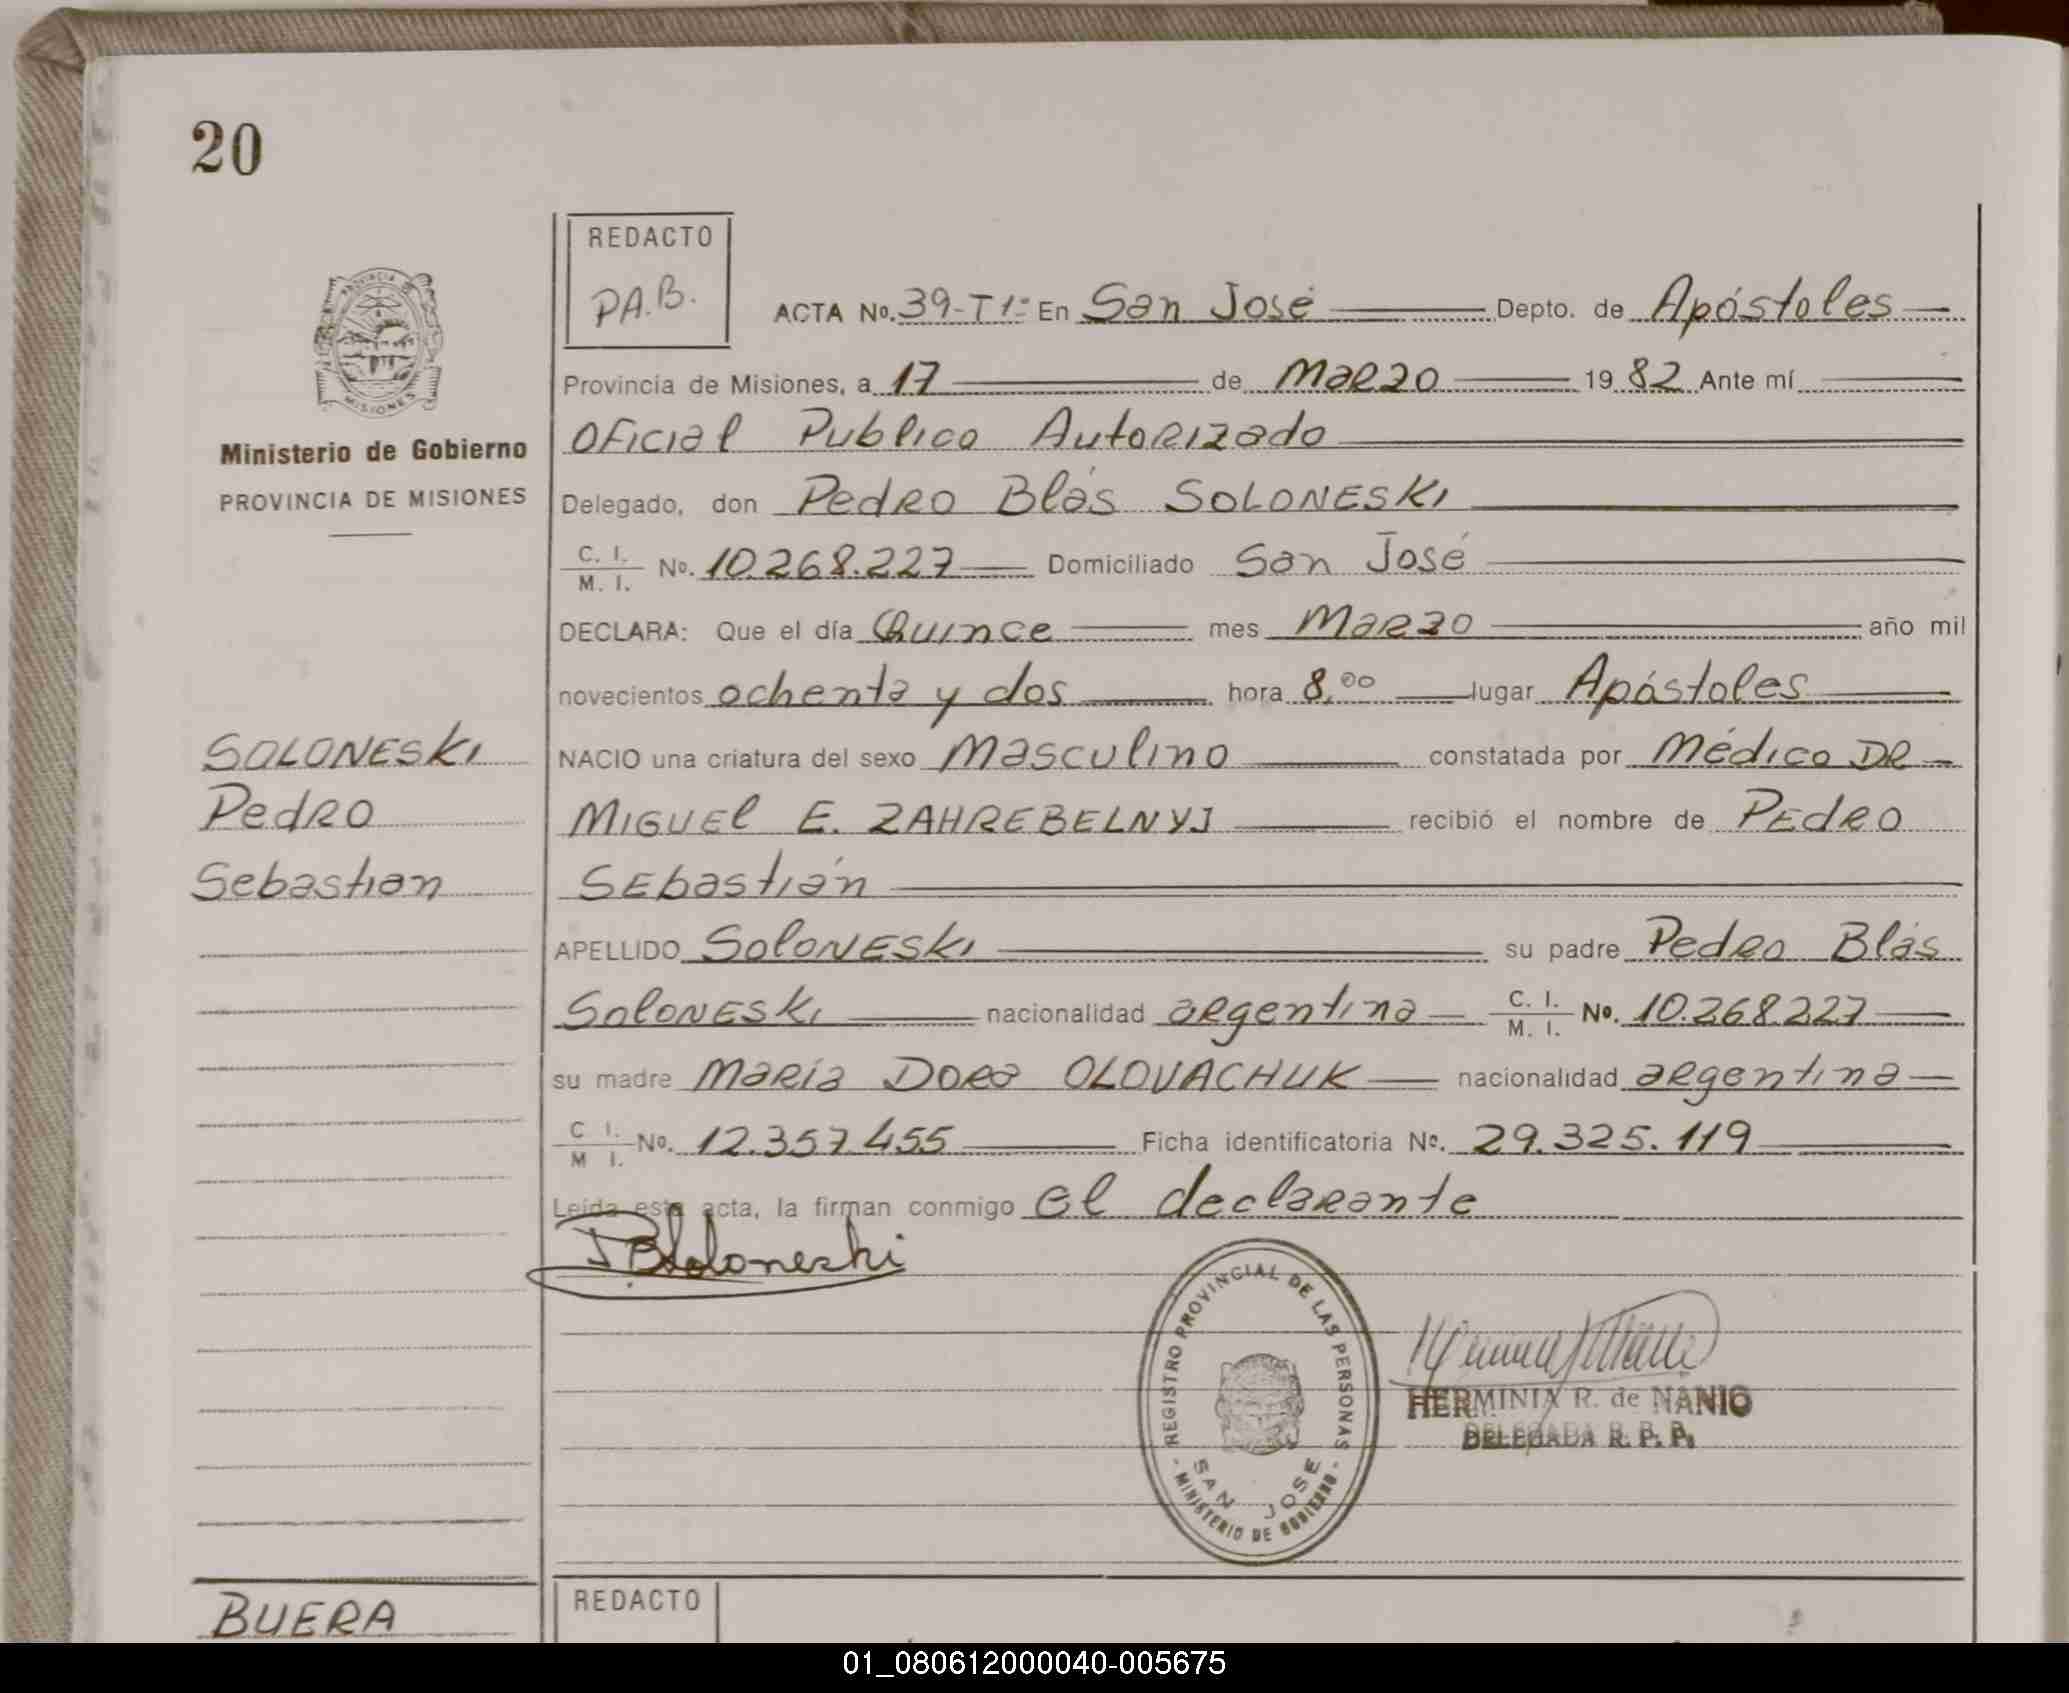 20
REDACTO
P.A.B.
PROVINCIA DE
MISIONES
Ministerio de Gobierno
PROVINCIA DE MISIONES
ACTA No. 39-T1º En San José Depto. de Apóstoles
Provincia de Misiones, a 17 de Marzo 1982 Ante mí
Oficial Publico Autorizado
Delegado, don Pedro Blás SOLONESKI
C. I. / M. I. No. 10.268.227 Domiciliado San José
DECLARA: Que el día Quince mes Marzo año mil
novecientos ochenta y dos hora 8,00 lugar Apóstoles
SOLONESKI
Pedro
Sebastian
NACIO una criatura del sexo Masculino constatada por Médico DR
MIGUEl E. ZAHREBELNYJ recibió el nombre de PEdRO
SEbastián
APELLIDO SoloNESki su padre Pedro Blás
SoloNESki nacionalidad argentina C. I. / M. I. No. 10.268.227
su madre María Dora OLOVACHUK nacionalidad argentina
C I. / M I. No. 12.357.455 Ficha identificatoria No. 29.325.119
Leída esta acta, la firman conmigo el declarante
PBSoloneski
REGISTRO PROVINCIAL DE LAS PERSONAS
SAN JOSE
- MINISTERIO DE GOBIERNO -
HERMINIA R. de NANIO
DELEGADA R. P. P.
BUERA
REDACTO
01_080612000040-005675